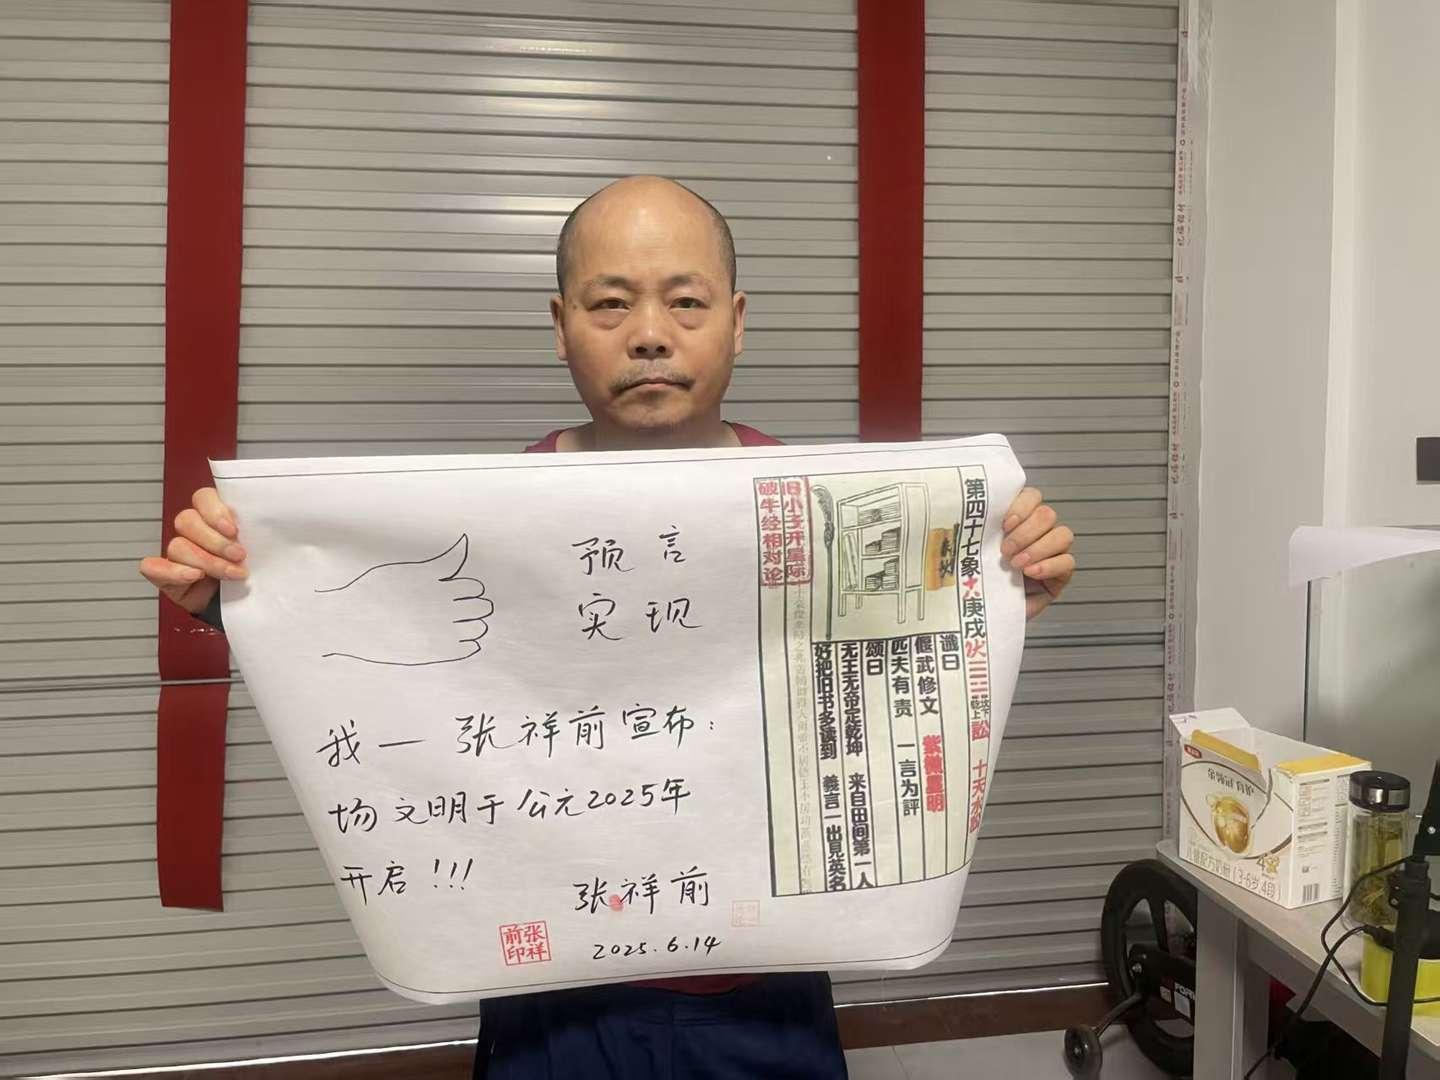 预言
实现
我一张祥前宣布：
场文明于公元2025年
开启！！！
张祥前
2025.6.14
张祥
前印
第四十七象 庚戌 訟
讖曰
偃武修文 紫微星明
匹夫有责 一言为评
颂曰
无王无帝定乾坤 来自田间第一人
好把旧书多读到 義言一出見英名
破牛经相对论
儿童配方奶粉（3-6岁，4段）